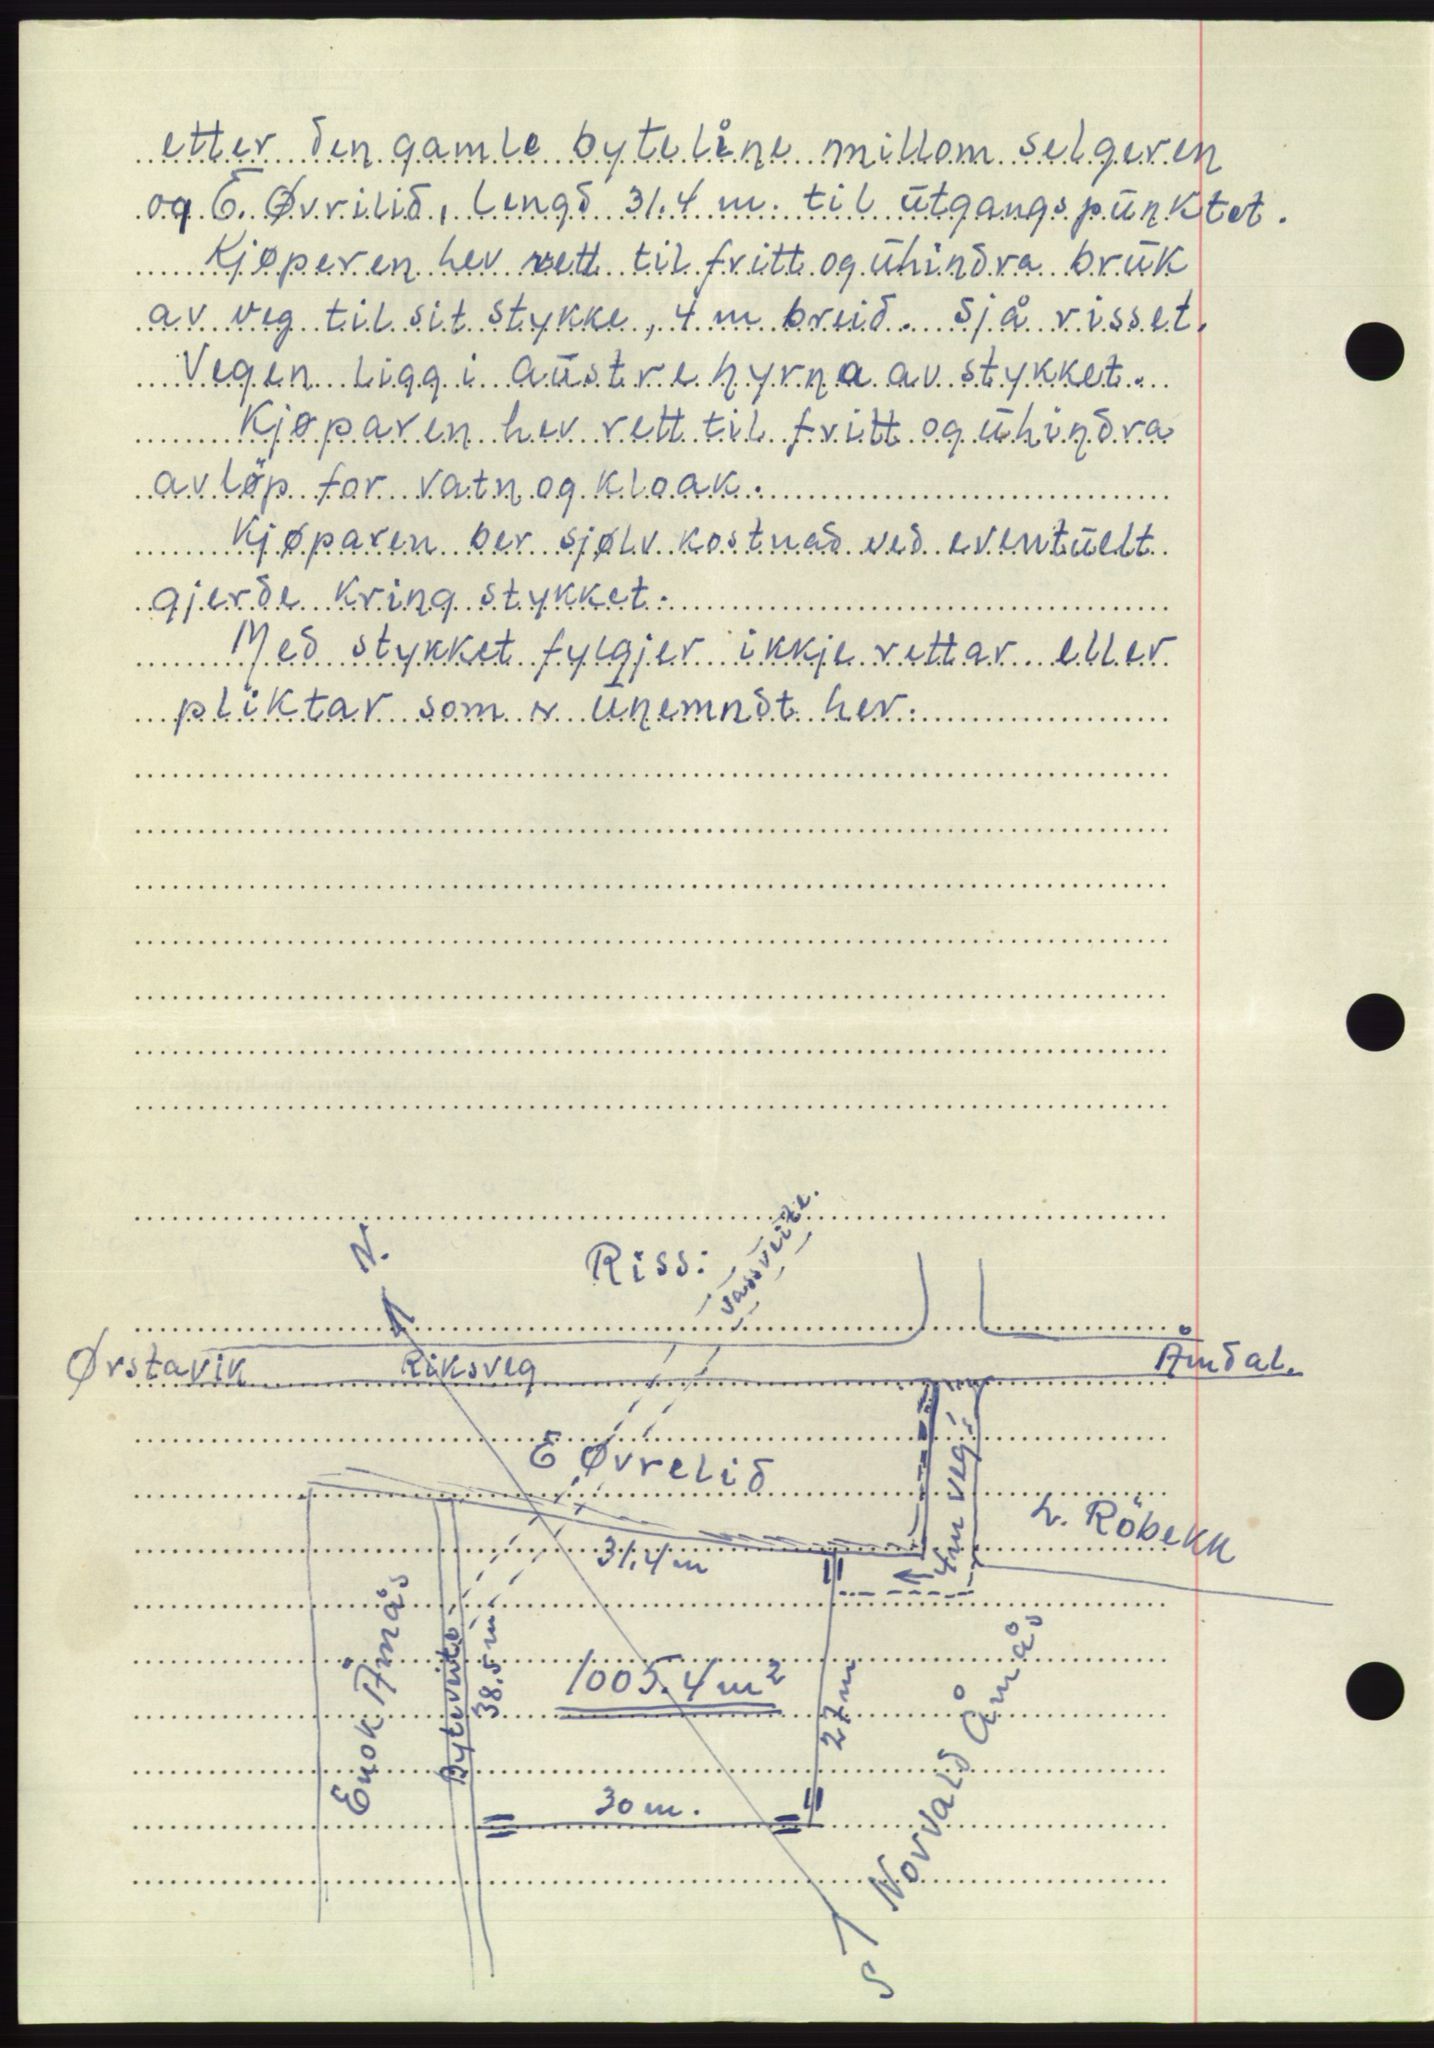 etter den gamle byteline millom selgeren
og E. Øvrilid, lengd 31.4 m. til ütgangspünktet.
Kjøperen hev rett til fritt og ühindra brük
av veg til sit stykke, 4 m breid. Sjå risset.
Vegen ligg i aüstre hyrna av stykket.
Kjøparen hev rett til fritt og ühindra
avløp for vatn og kloak.
Kjøparen ber sjølv kostnad ved eventüelt
gjerde kring stykket.
Med stykket fylgjer ikkje rettar eller
pliktar som er ünemndt her.
N.
Riss:
Vassveite.
Ørstavik
Riksveg
Åmdal.
E Øvrelid
4m veg.
L. Röbekk
31.4 m
Enok Åmås
Byteveite
38.5 m
1005.4 m²
27 m
Norvald Åmås
30 m.
S